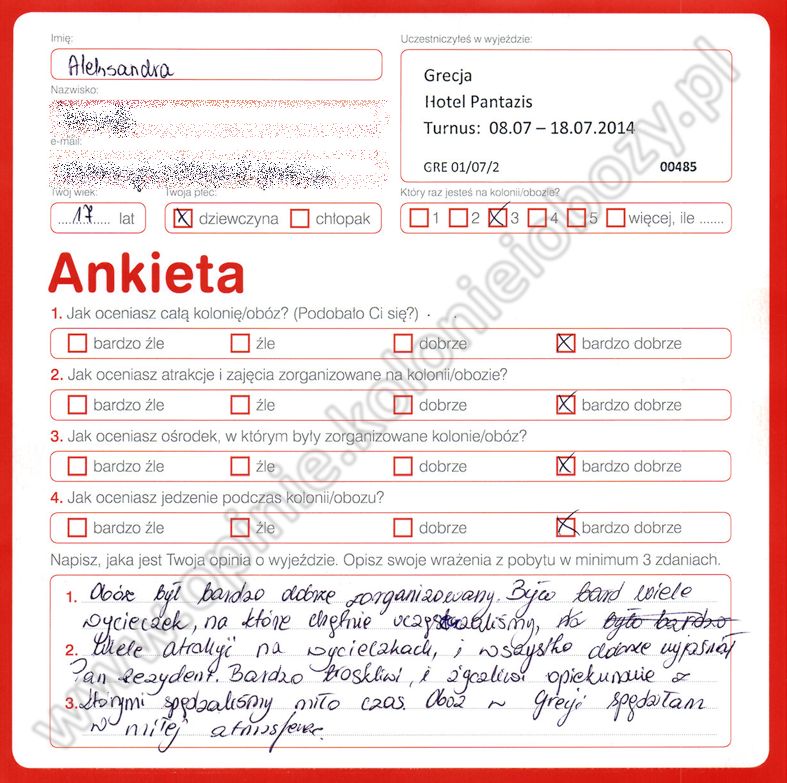 Imię:
Aleksandra
Nazwisko:
e-mail:
Twój wiek:
17 lat
Twoja płeć:
dziewczyna chłopak
Uczestniczyłeś w wyjeździe:
Grecja
Hotel Pantazis
Turnus: 08.07 – 18.07.2014
GRE 01/07/2 00485
Który raz jesteś na kolonii/obozie?
1 2 3 4 5 więcej, ile .......
Ankieta
1. Jak oceniasz całą kolonię/obóz? (Podobało Ci się?)
bardzo źle źle dobrze bardzo dobrze
2. Jak oceniasz atrakcje i zajęcia zorganizowane na kolonii/obozie?
bardzo źle źle dobrze bardzo dobrze
3. Jak oceniasz ośrodek, w którym były zorganizowane kolonie/obóz?
bardzo źle źle dobrze bardzo dobrze
4. Jak oceniasz jedzenie podczas kolonii/obozu?
bardzo źle źle dobrze bardzo dobrze
Napisz, jaka jest Twoja opinia o wyjeździe. Opisz swoje wrażenia z pobytu w minimum 3 zdaniach.
1. Obóz był bardzo dobrze zorganizowany. Było bard wiele
wycieczek, na które chętnie uczęszczaliśmy, było bardzo
2. Wiele atrakcji na wycieczkach, i wszystko dobrze wyjaśniał
Pan rezydent. Bardzo troskliwi, i życzliwi opiekunowie z
3. którymi spędzaliśmy miło czas. Obóz w Grecji spędziłam
w miłej atmosferze.
www.opinie.kolonieiobozy.pl